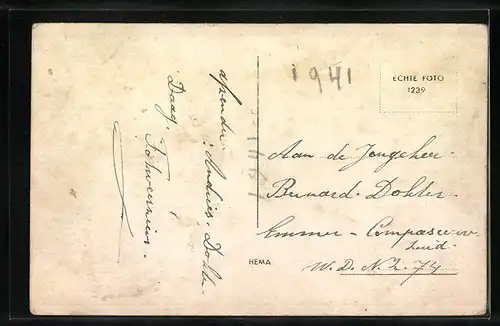 afzender: Andries. Dohle
Daag.
1941
1941
ECHTE FOTO
1239
Aan de Jongeheer
Bernard. Dohle.
Emmer - Compascuum
Zuid.
W. D. N. 2. 74
HEMA